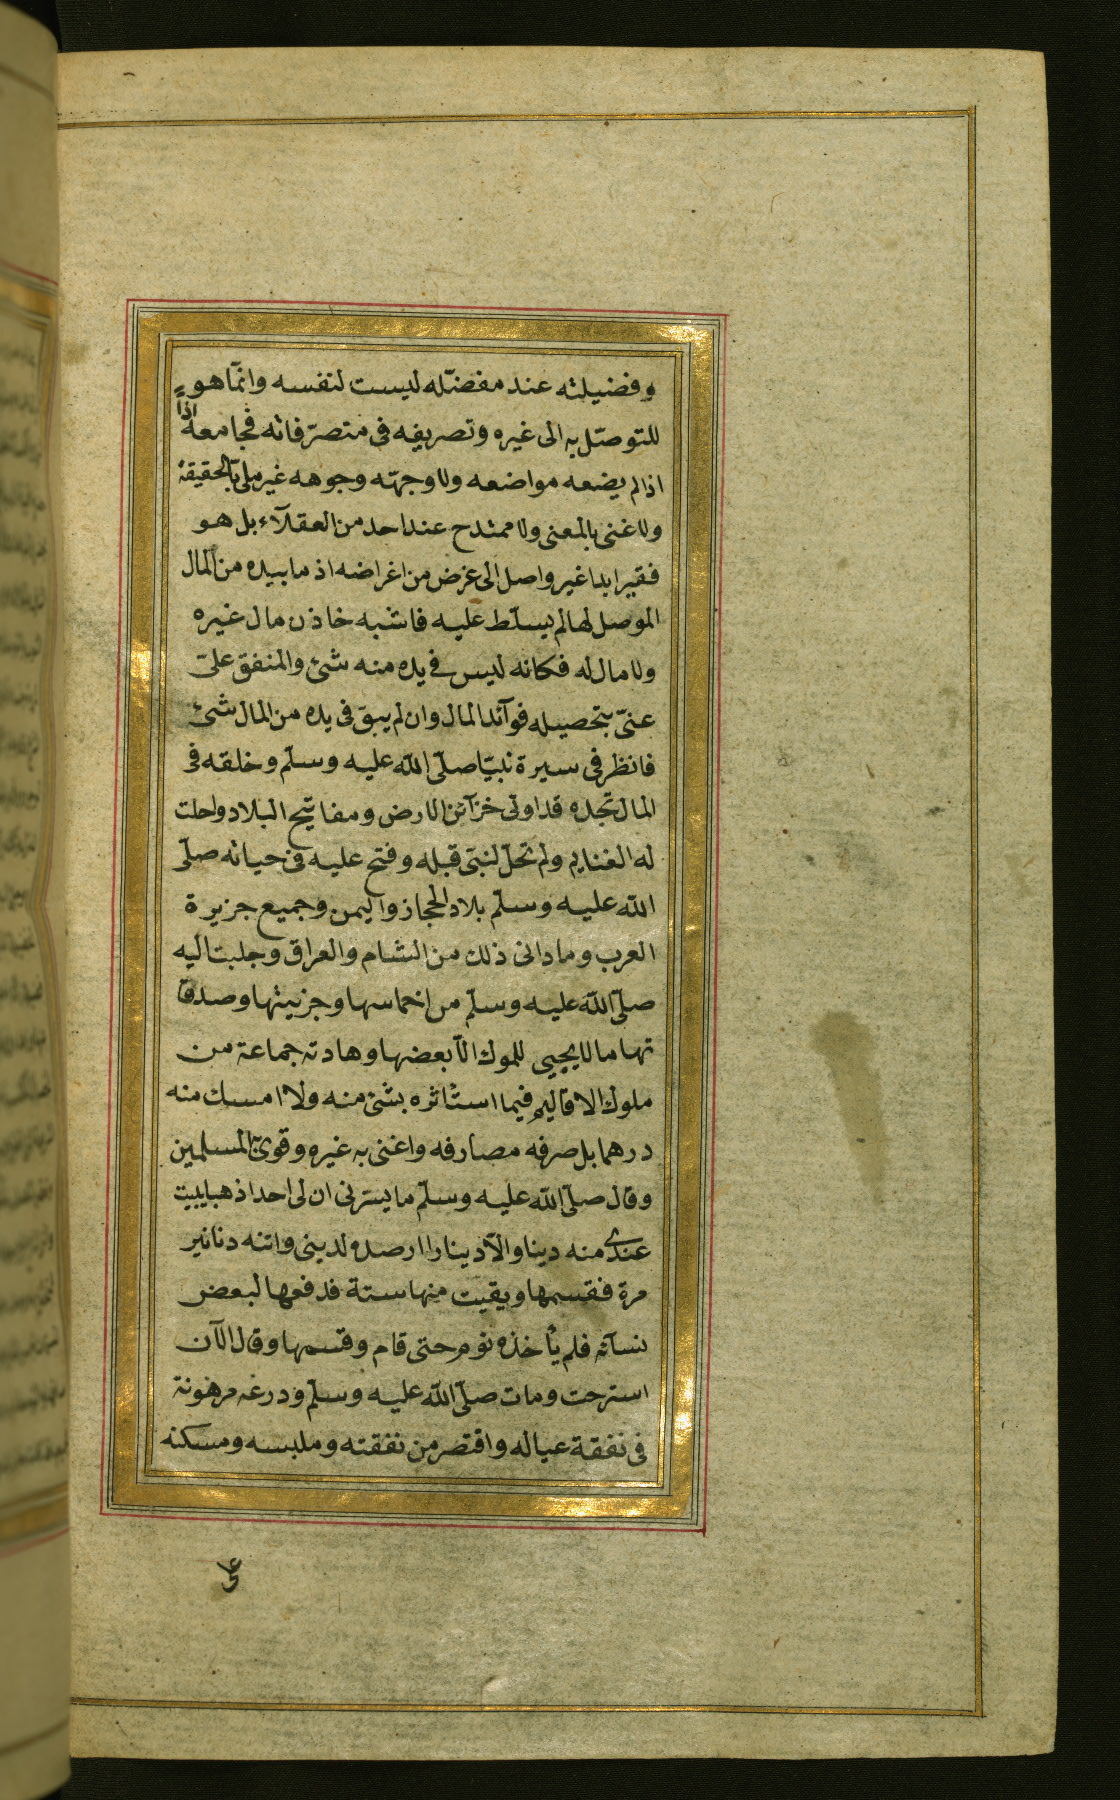 وفضيلته عند مفضّله ليست لنفسه وانّما هو
للتوصّل به الى غيره وتصريفه فى متصرّفاته فجامعه اذاً
اذا لم يضعه مواضعه ولا وجهّه وجوهه غير ملىّ بالحقيقة
ولا غنى بالمعنى ولا ممتدح عند احد من العقلآء بل هو
فقير ابدا غير واصل الى غرض من اغراضه اذ ما بيده من المال
الموصل لها لم يسلّط عليه فاشبه خاذن مال غيره
ولا مال له فكانه ليس فى يده منه شئ والمنفق علىّ
عنىّ بتحصيله فوآئد المال وان لم يبق فى يده من المال شئ
فانظر فى سيرة نبيّنا صلّى الله عليه وسلّم وخلقه فى
المال تجده قد اوتى خزآئن الارض ومفاتيح البلاد واحلت
له الغنايم ولم تحلّ لنبىّ قبله وفتح عليه فى حياته صلّى
الله عليه وسلّم بلاد الحجاز واليمن وجميع جزيرة
العرب وما دانى ذلك من الشام والعراق وجلبت اليه
صلّى الله عليه وسلّم من اخماسها وجزيتها وصدقا
تها ما لا يجيى للموك الّا بعضها وهادته جماعة من
ملوك الاقاليم فيما استأثره بشئ منه ولا امسك منه
درهما بل صرفه مصارفه واغنى به غيره وقوىّ المسلمين
وقال صلّى الله عليه وسلّم ما يسرّنى ان لى احدا ذهبا يبيت
عندى منه دينا والّا دينارا ارصده لدينى واتنه دنانير
مرة فقسمها وبقيت منها ستة فدفعها لبعض
نسآئه فلم يأخذه نوم حتى قام وقسمها وقال الآن
استرحت ومات صلّى الله عليه وسلّم ودرعه مرهونة
فى نفقة عياله واقتصر من نفقته وملبسه ومسكنه
على